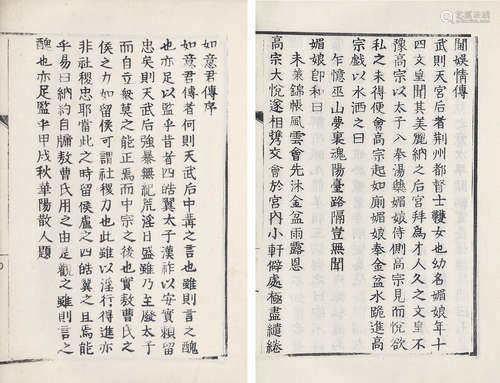 閫娛情傳
武則天宮后者荆州都督士彠女也幼名媚娘年十
四文皇聞其美麗納之后宮拜爲才人久之文皇不
豫高宗以太子入奉湯藥媚娘侍側高宗見而悦欲
私之未得便會高宗起如廁媚娘奉金盆水跪進高
宗戲以水洒之曰
乍憶巫山夢裏魂陽臺路隔豈無聞
媚娘卽和曰
未藥錦帳風雲會先沐金盆雨露恩
高宗大悦遂相携交會於宮内小軒僻處極盡繾綣
如意君傳序
如意君傳者何則天武后中冓之言也雖則言之醜
也亦足以監乎昔者四皓翼太子漢祚以安實賴留
忠矣則天武后強暴無紀荒淫日盛雖乃至廢太子
而自立衆莫之能正焉而中宗之後也實敖曹氏之
侯之力如留侯可謂社稷力也此雖以淫行得進亦
非社稷忠耶當此之時留侯盧之四皓翼之且焉能
乎易曰納約自牖敖曹氏用之由是觀之雖則言之
醜也亦足監乎甲戌秋華陽散人題